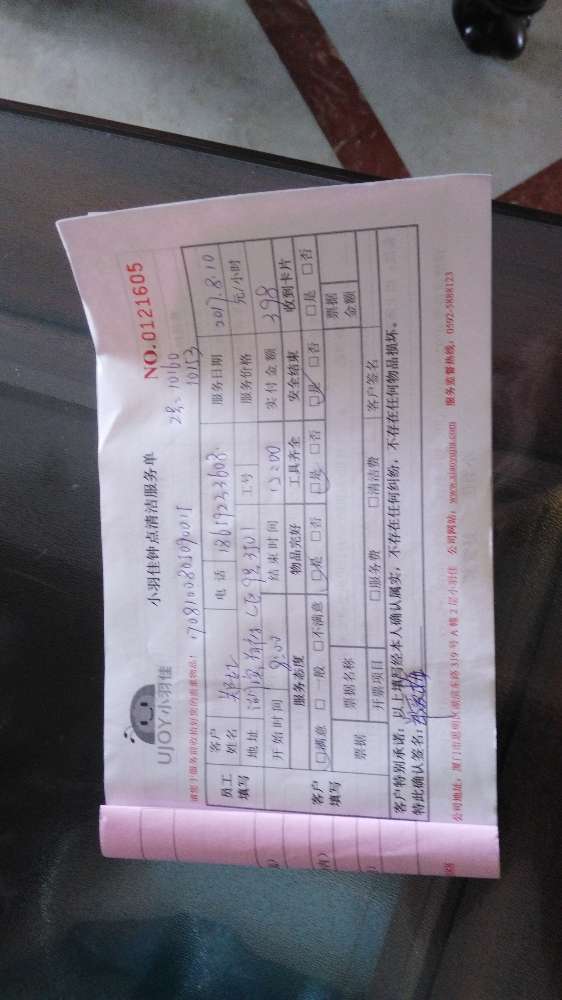 UJOY小羽佳
小羽佳钟点清洁服务单
NO.0121605
请您于服务前收拾好您的贵重物品!
10153
员工填写
客户姓名 电话 服务日期 2017.8.10
地址 工号 服务价格 元/小时
开始时间 8:00 结束时间 12:00 实付金额 398
客户填写
服务态度 物品完好 工具齐全 安全结束 收到卡片
□满意 □一般 □不满意 □是 □否 □是 □否 □是 □否 □是 □否
票据 票据名称 票据金额
开票项目 □服务费 □清洁费 客户签名
客户特别承诺:以上填写经本人确认属实,不存在任何纠纷,不存在任何物品损坏。
特此确认签名:
公司地址:厦门市思明区湖滨东路319号A幢2层小羽佳 公司网站:www.xiaoyujia.com 服务监督热线:0592-5888123